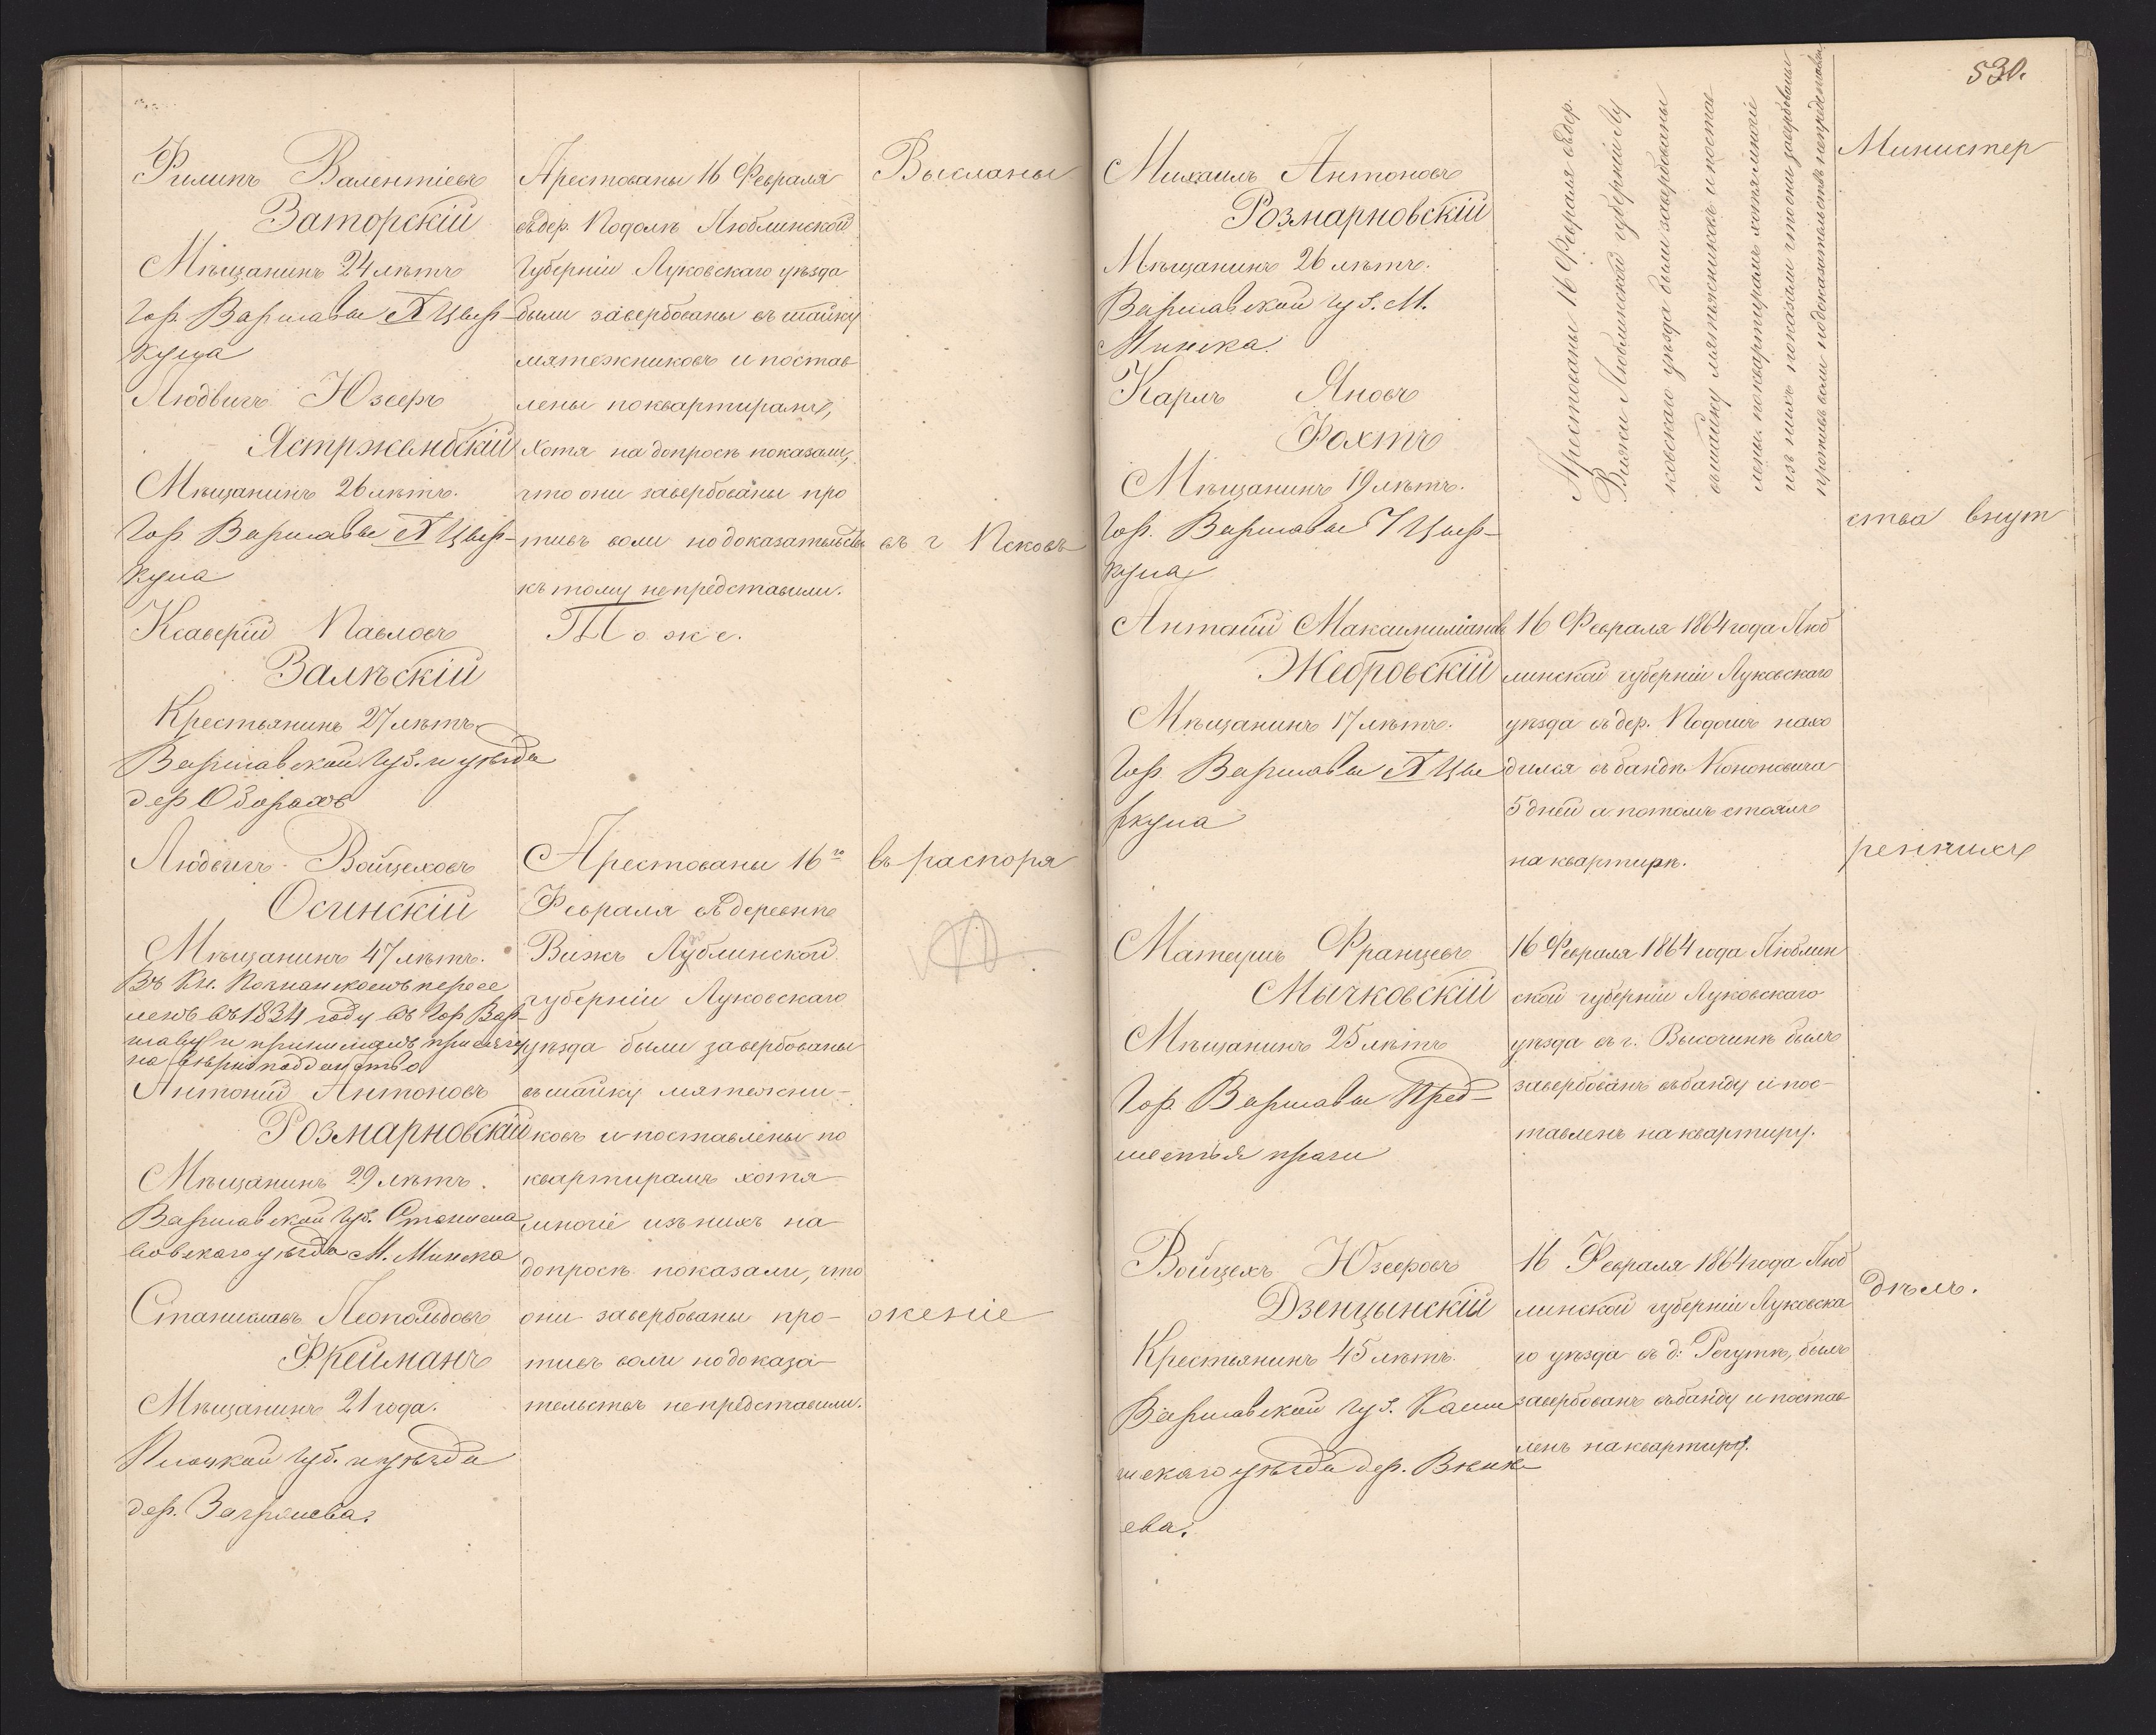 Филипъ Валентіевъ
Заторскій
Мѣщанинъ 24 лѣтъ
Гор. Варшавы Цыр-
кула
Людвигъ Юзефъ
Ястржембскій
Мѣщанинъ 26 лѣтъ.
Гор. Варшавы Цыр-
кула
Ксаверій Павловъ
Залѣскій
Крестьянинъ 27 лѣтъ
Варшавской Губ. и уѣзда
дер Оборахъ
Людвигъ Войцеховъ
Осинскій
Мѣщанинъ 47 лѣтъ.
Въ Кн. Познанскомъ пересе
ленъ въ 1834 году въ Гор Вар-
шаву и принималъ присягу
на вѣрноподданство
Антоній Антоновъ
Розмарновскій
Мѣщанинъ 29 лѣтъ.
Варшавской Губ. Станисла
вовскаго уѣзда М. Минска
Станиславъ Леопольдовъ
Фрейманъ
Мѣщанинъ 21 года.
Плоцкой Губ. и уѣзда
дер.
Арестованы 16 Февраля
въ дер. Подолѣ Люблинской
Губерніи Луковскаго уѣзда
были завербованы въ шайку
мятежниковъ и постав
лены по квартирамъ,
Хотя на допросѣ показали,
что они завербованы про
тивъ воли но доказательствъ
къ тому не представили.
Тоже.
Арестованы 16го
Февраля въ деревнѣ
Вижъ Люблинской
губерніи Луковскаго
уѣзда были завербованы
въ шайку мятежни-
ковъ и поставлены по
квартирамъ хотя
многіе изъ нихъ на
допросѣ показали, что
они завербованы про-
тивъ воли но доказа
тельствъ не представили.
Высланы
въ г Псковъ
въ распоря
женіе
530.
Михаилъ Антоновъ
Розмарновскій
Мѣщанинъ 26 лѣтъ.
Варшавской губ. М.
Минска.
Карлъ Яновъ
Фохтъ
Мѣщанинъ 19 лѣтъ.
Гор. Варшавы Цыр-
кула
Антоній Максимиліановъ
Жебровскій
Мѣщанинъ 17 лѣтъ.
Гор. Варшавы Цы
ркула
Матеушъ Францевъ
Мычковскій
Мѣщанинъ 25 лѣтъ
Гор. Варшавы Пред-
местья праги
Войцехъ Юзефовъ
Дзенцынскій
Крестьянинъ 45 лѣтъ.
Варшавской губ. Кали
шскаго уѣзда дер.
ева.
Арестованы 16 Февраля въ дер.
Вижки Люблинской губерніи Лу
ковскаго уѣзда были завербованы
въ шайку мятежниковъ и постав
лены по квартирамъ хотя многіе
изъ нихъ показали что они завербованы
противъ воли но доказательствъ не представили
16 Февраля 1864 года Люб
линской губерніи Луковскаго
уѣзда въ дер. Подоли нахо
дился въ бандѣ Кононовича
5 дней а потомъ стоялъ
на квартирѣ.
16 Февраля 1864 года Люблин
ской губерніи Луковскаго
уѣзда въ г. Высочинѣ былъ
завербованъ въ банду и пос-
тавленъ на квартиру.
16 Февраля 1864 года Люб
линской губерніи Луковска
го уѣзда въ д: Рогутѣ, былъ
завербованъ въ банду и постав
ленъ на квартиру.
Министер
ства внут
реннихъ
дѣлъ.